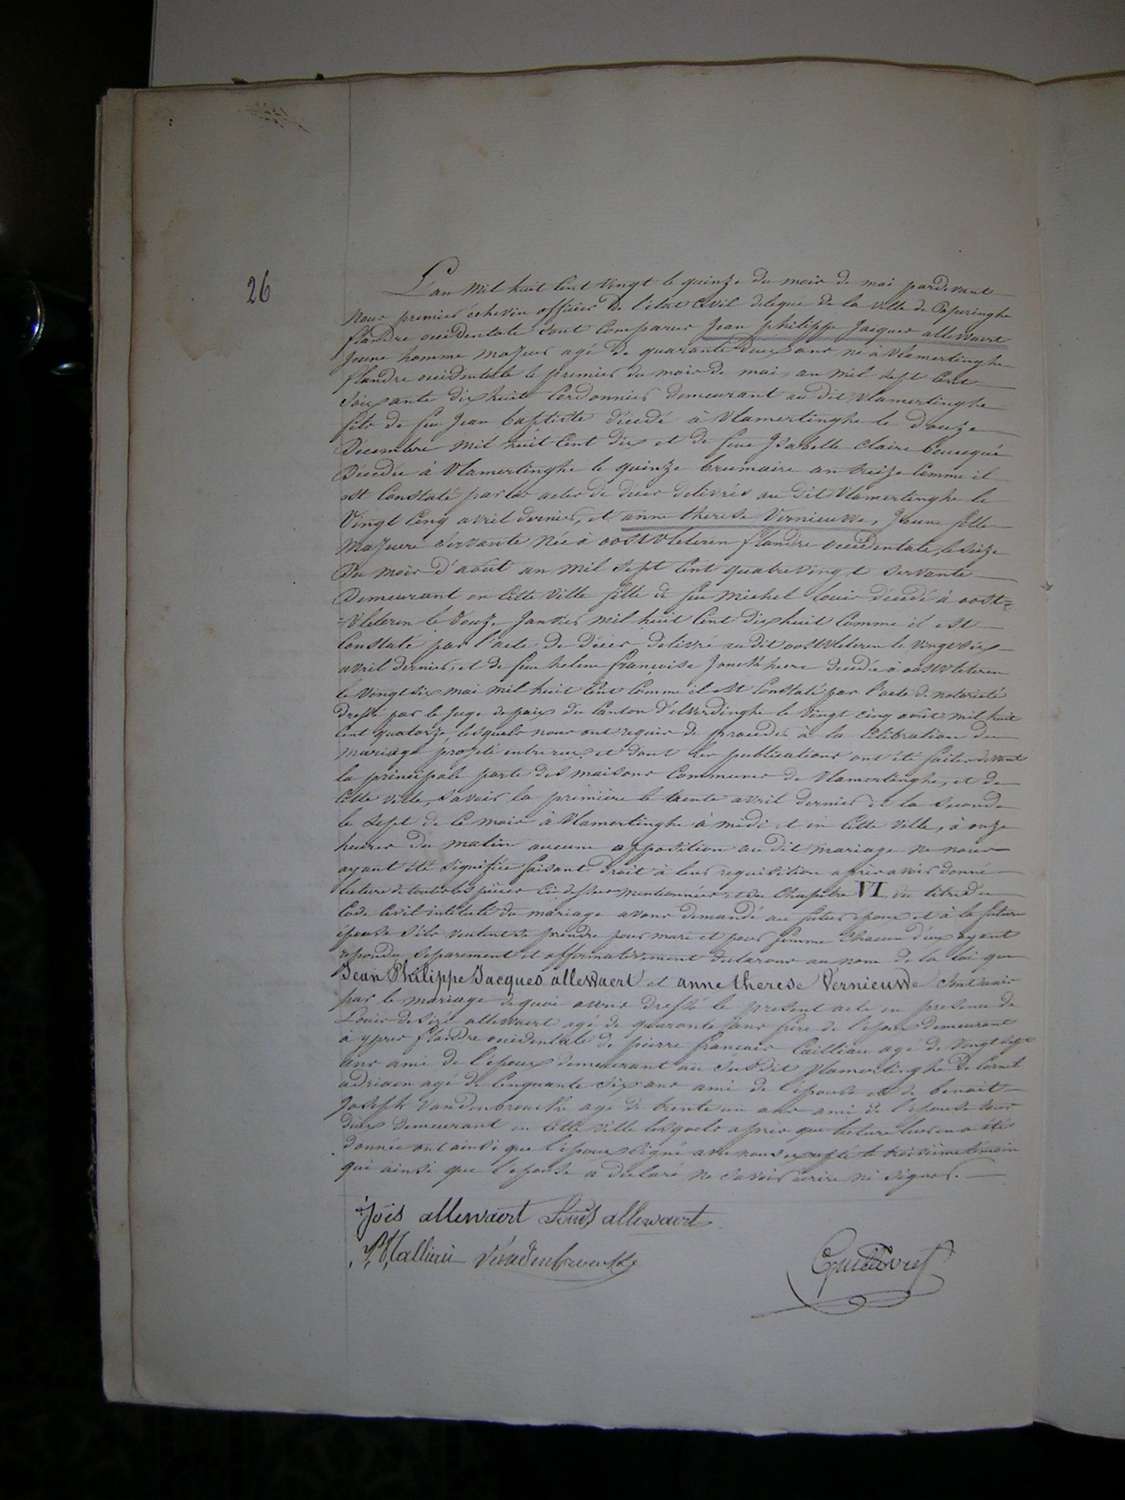 26
L'an mil huit cent vingt le quinze du mois de mai pardevant
nous premier échevin officier de l'état civil delegué de la ville de Poperinghe
flandre occidentale sont comparus Jean philippe Jacques allewaert
jeune homme majeur agé de quarante deux ans né à Vlamertinghe
flandre occidentale le premier du mois de mai an mil sept cent
soixante dix huit Cordonnier demeurant au dit Vlamertinghe
fils de feu Jean baptiste décédé à Vlamertinghe le douze
Decembre mil huit cent dix et de feue Isabelle Claire
Décedée à Vlamertinghe le quinze brumaire an treize comme il
est Constaté par les actes de décès delivrés au dit Vlamertinghe le
Vingt Cinq avril dernier, et anne therese Vernieuwe, Jeune fille
majeure servante née à oostvleteren flandre occidentale le seize
Du mois d'août an mil sept cent quatrevingt servante
Demeurant en cette ville fille de feu Michel Louis décedé à oost=
=vleteren le Janvier mil huit cent dix huit comme il est
Constaté par l'acte de Décès delivré au dit oostvleteren le vingt six
avril dernier, et de feue helene françoise Jonckheere decedée à oostvleteren
le vingt six mai mil huit cent comme il est Constaté par l'acte de notorieté
dressé par le Juge de paix du Canton d'Elverdinghe le vingt cinq août mil huit
cent quatorze, lesquels nous ont requis de procéder à la célébration du
mariage projeté entre eux et dont les publications ont été faites devant
la principale porte des maisons communes de Vlamertinghe, et de
Cette ville, savoir la première le trente avril dernier et la seconde
le sept de ce mois à Vlamertinghe à midi et en cette ville, à onze
heures du matin aucune opposition au dit mariage ne nous
ayant été signifiée faisant droit à leur requisition après avoir donné
lecture de toutes les pièces ci-dessus mentionnées et du Chapitre VI du titre du
Code Civil intitulé du mariage avons demandé au futur epoux et à la future
épouse s'ils veulent se prendre pour mari et pour femme chacun d'eux ayant
repondu separement et affirmativement declarons au nom de la loi que
Jean Philippe Jacques allewaert et anne therese Vernieuwe sont unis
par le mariage de quoi avons dressé le present acte en presence de
Louis allewaert agé de quarante ans frere de l'epoux demeurant
à ypres flandre occidentale de pierre francois Cailliau agé de vingt sept
ans ami de l'epoux demeurant au susdit Vlamertinghe De
adriaen agé de Cinquante six ans ami de l'épouse et de benoit
Joseph vandenbroucke agé de trente un ans ami de l'épouse tous
deux demeurant en cette ville lesquels après que lecture leur en a été
donnée ont ainsi que l'epoux signé avec nous excepté le troisième témoin
qui ainsi que l'epouse a déclaré ne savoir ecrire ni signer.
allewaert Louis allewaert